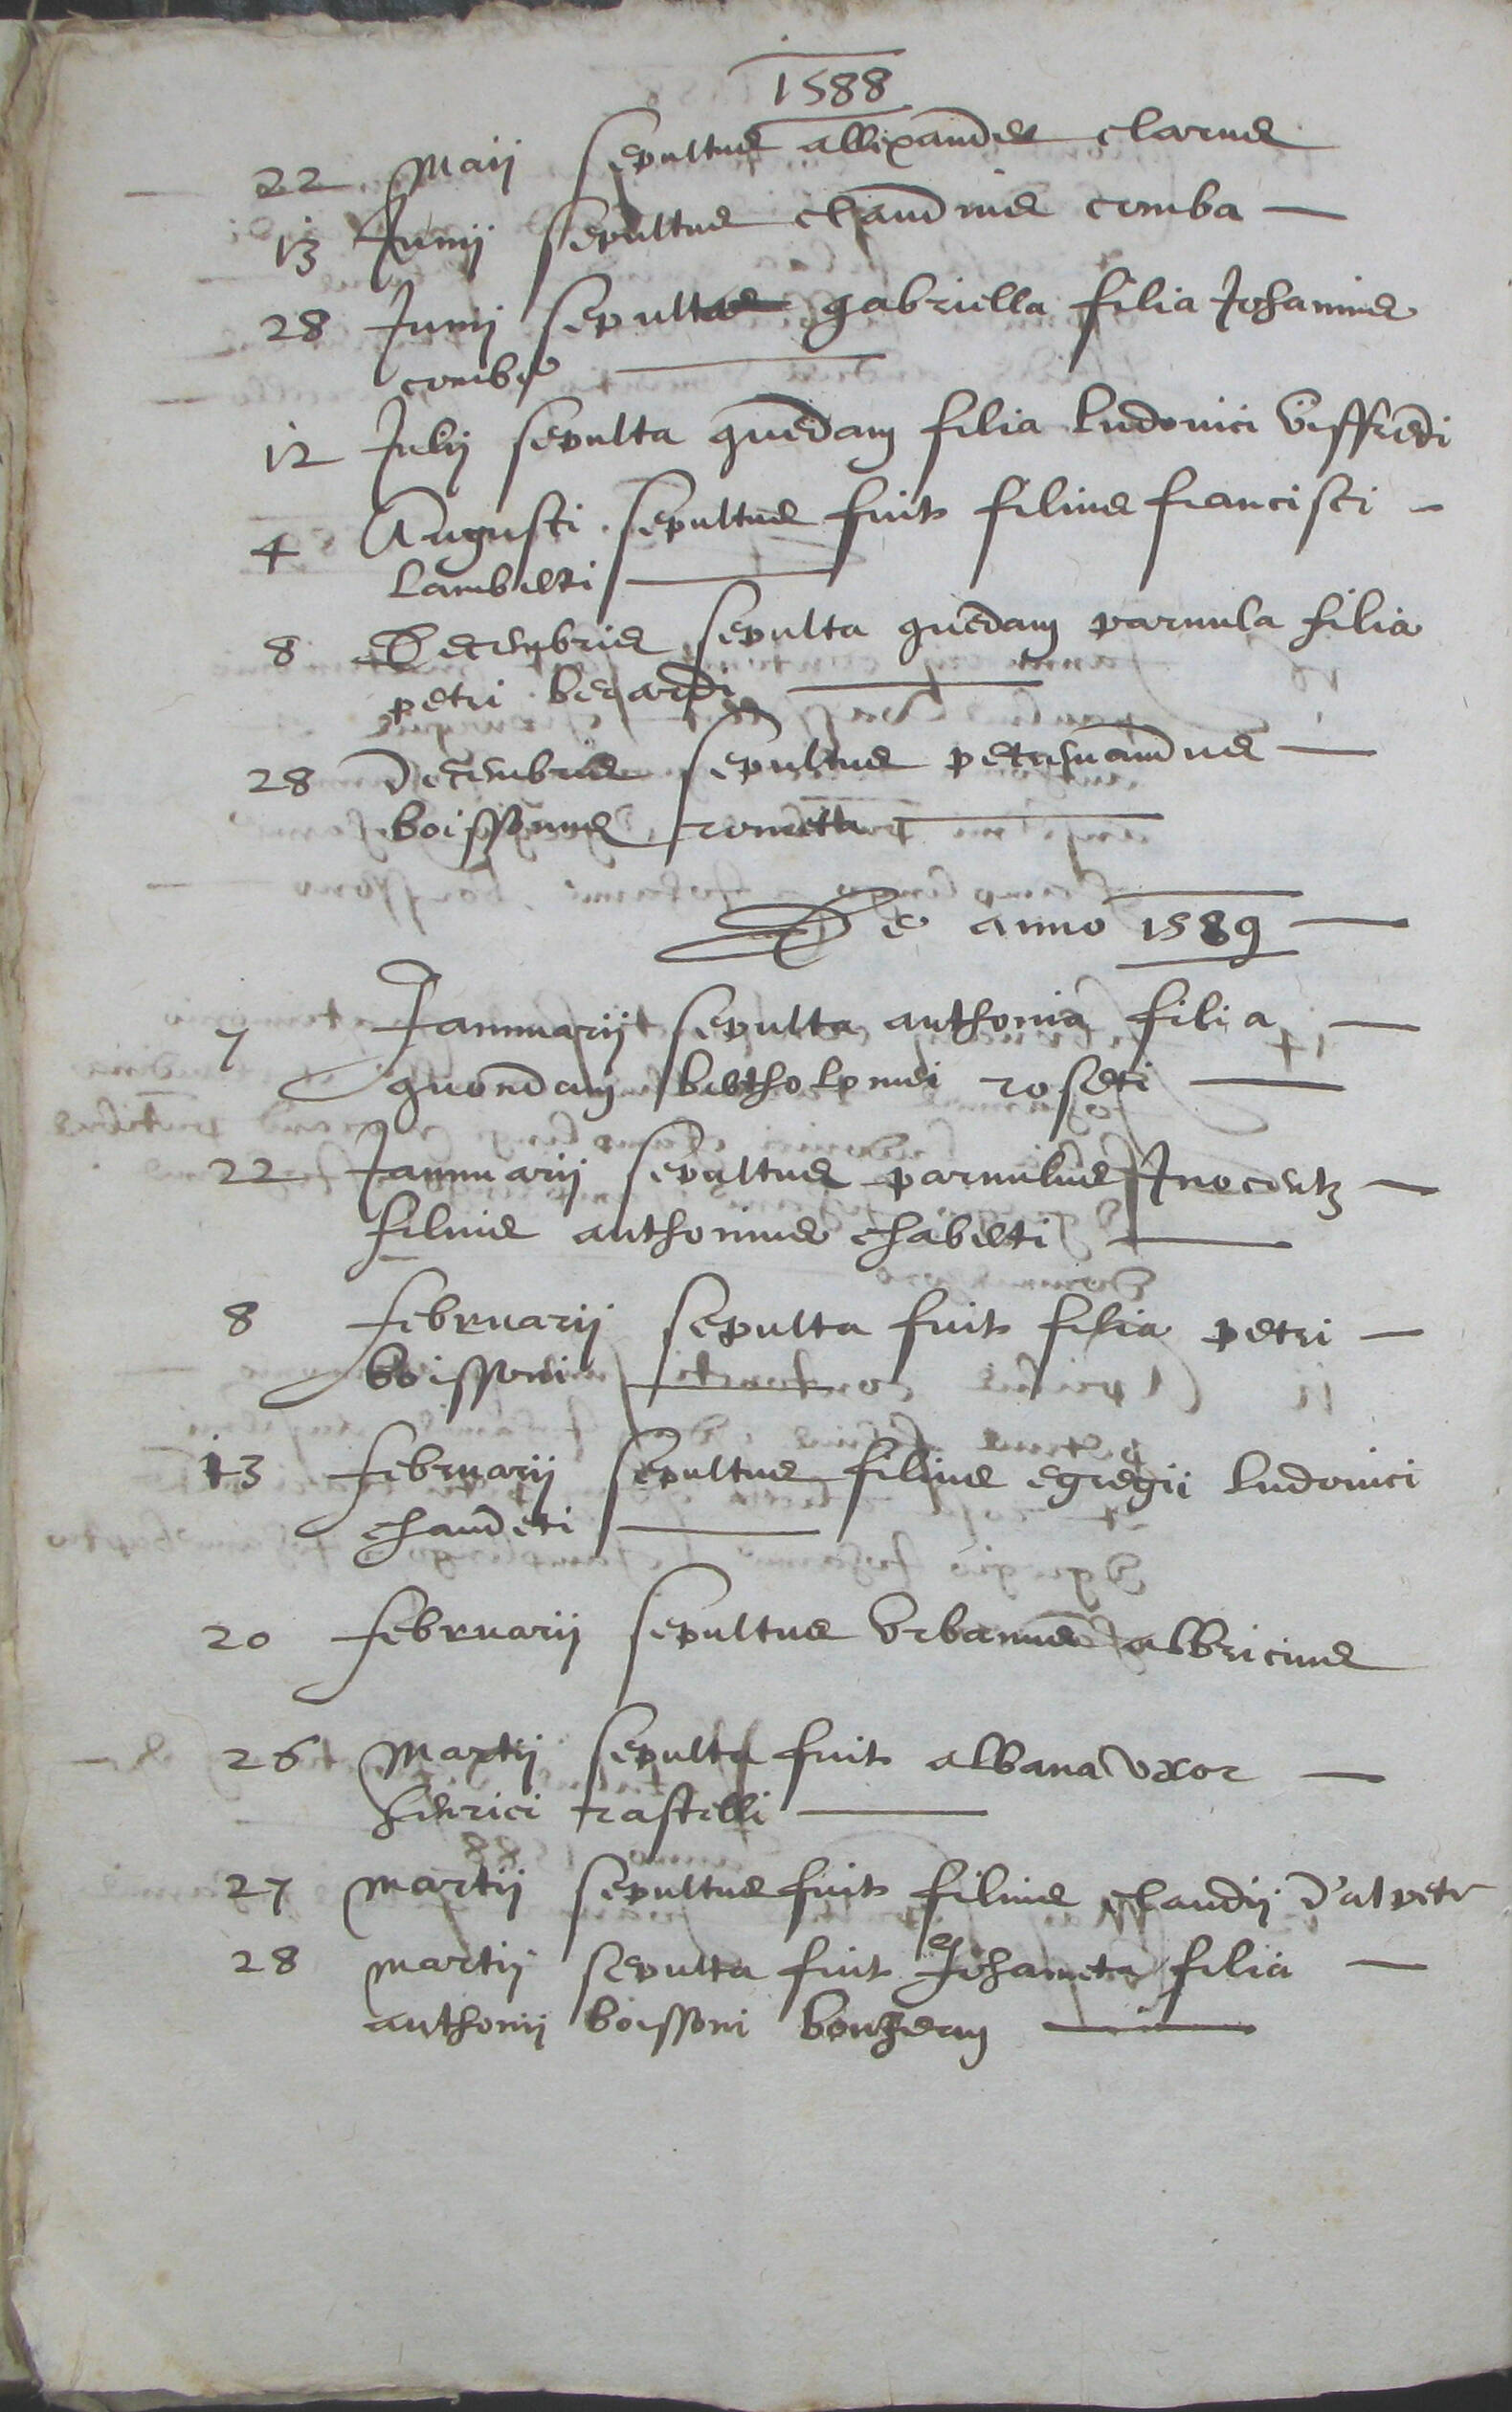 1588
22 Maii sepultus allexander clarus
13 Junii sepultus claudius comba
28 Junii sepulta gabriella filia Johannis
combe
12 Julii sepulta quedam filia ludovici
4 Augusti sepultus fuit filius francisci
lamberti
8 Decembris sepulta quedam parvula filia
petri berardi
28 Decembris sepultus
boissonus
De anno 1589
7 Januarii sepulta anthonia filia
quondam bertholomei roseti
22 Januarii sepultus parvulus Inocentz
filius anthonius chaberti
8 februarii sepulta fuit filia petri
boissoni
13 februarii sepultus filius egregii ludovici
chaudeti
20 februarii sepultus Urbanus albricius
26 Martii sepulta fuit albana uxor
henrici rastelli
27 martii sepultus fuit filius claudii
28 martii sepulta fuit Johaneta filia
anthonii boissoni